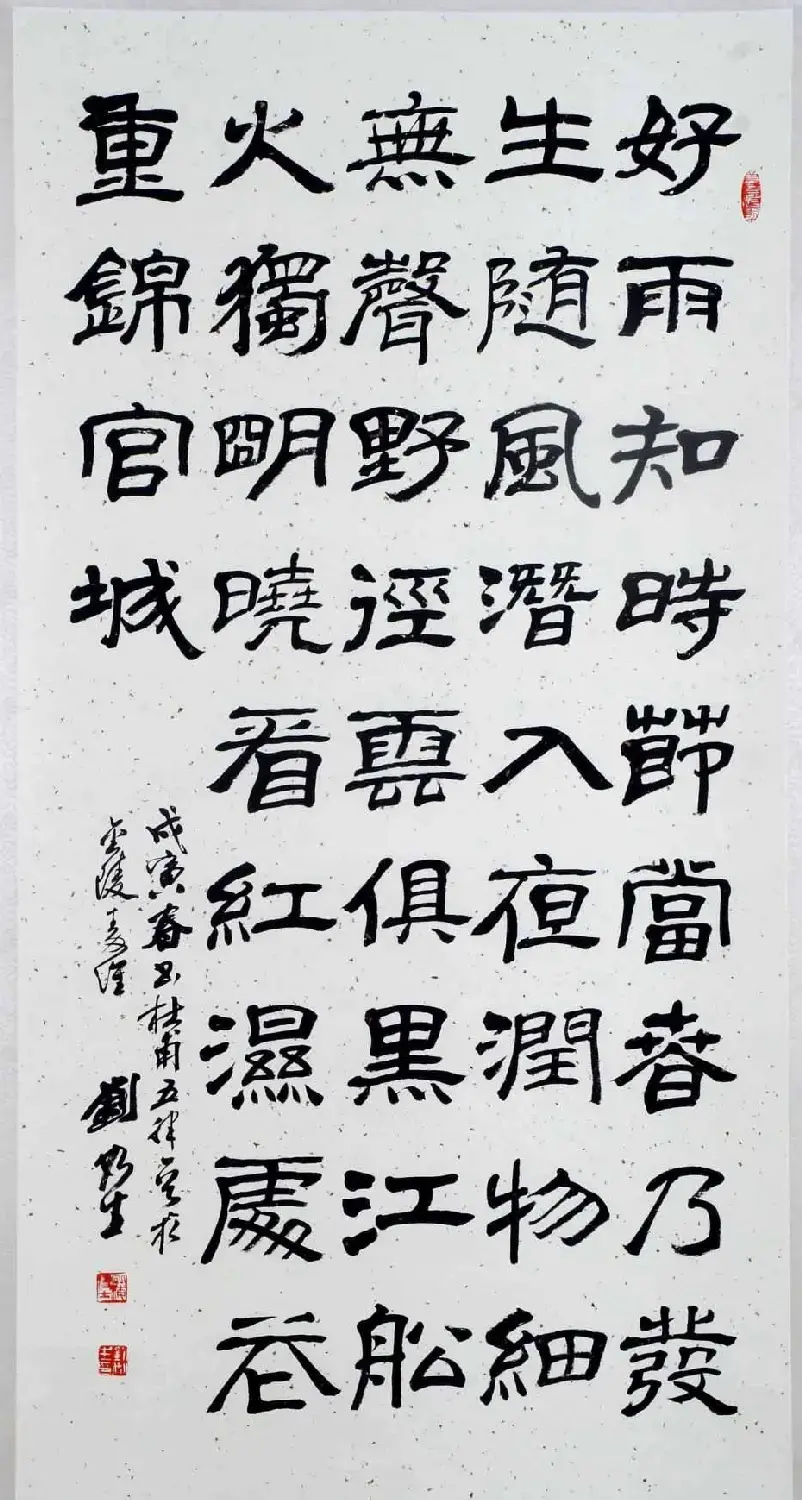 好雨知時節當春乃發
生随風潜入夜潤物細
無聲野徑雲俱黑江船
火獨明曉看紅濕處花
重錦官城
戊寅春书杜甫五律於
金陵
劉生